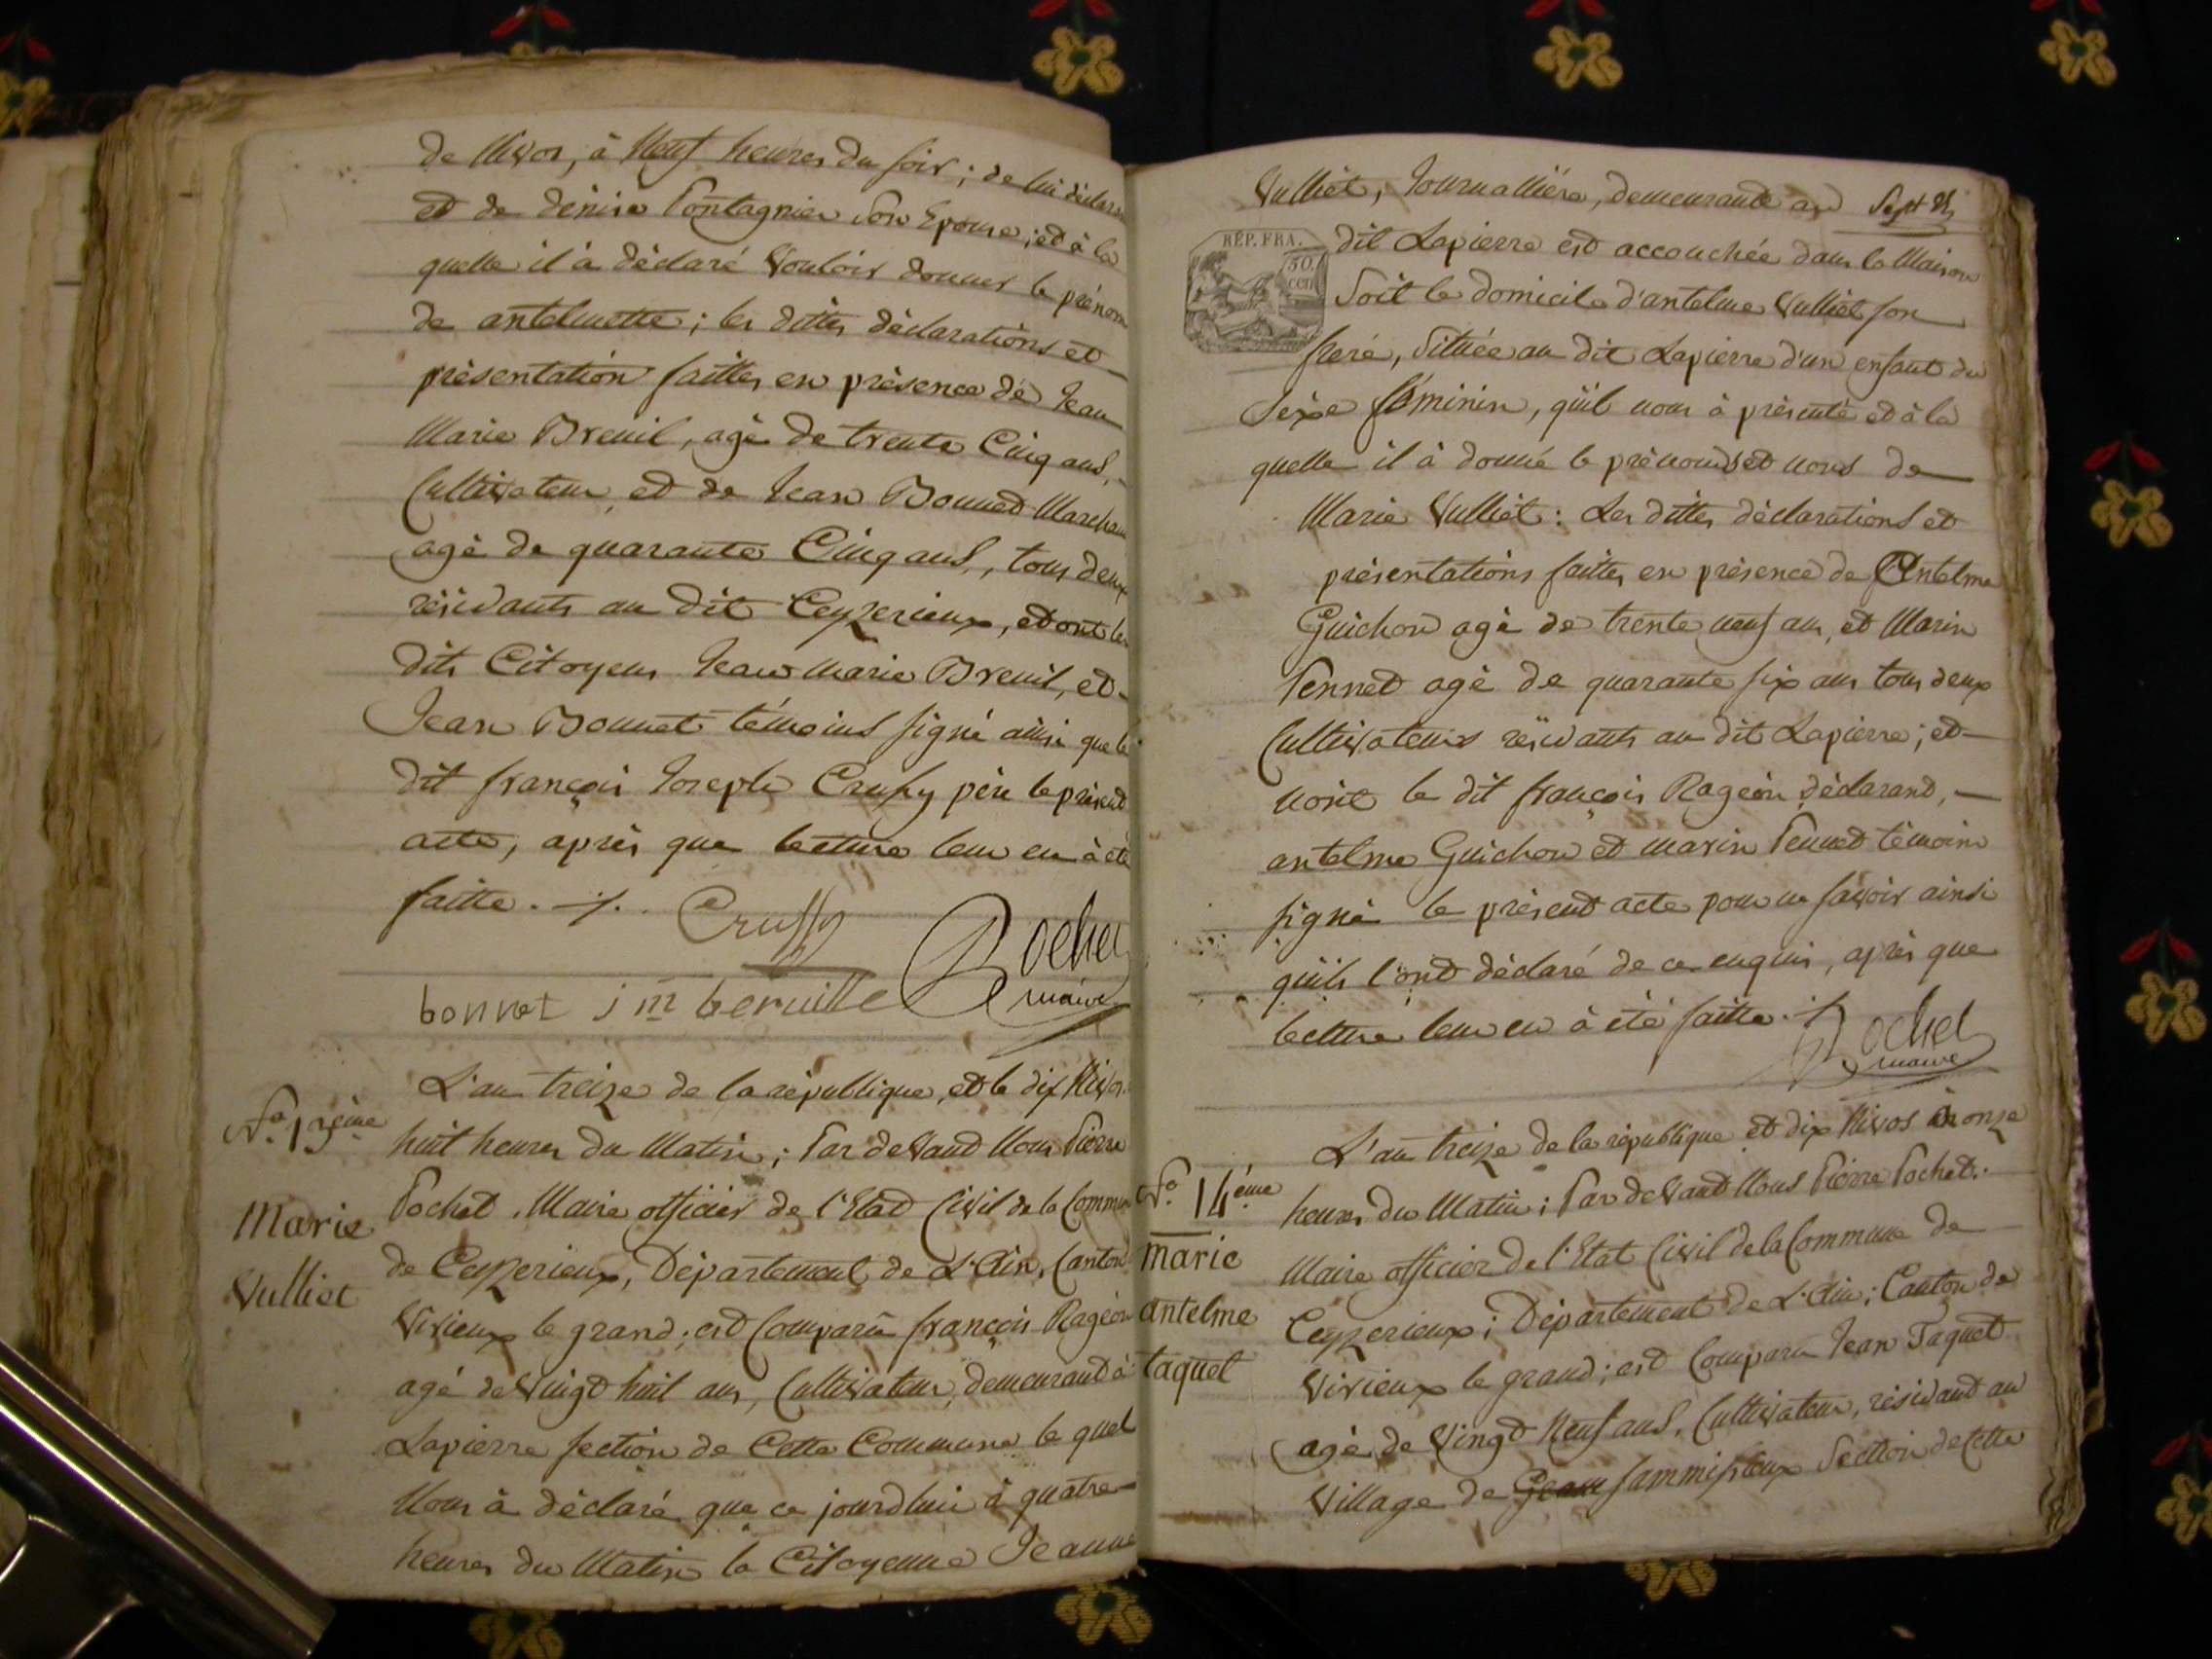 de Nivos, à Neuf heures du soir; de lui déclara
et de dénise Pontagnier son Epouse; et à la
quelle il à déclaré Vouloir donner le prénom
de antelmette; les dittes déclarations et
présentation faittes en présence de Jean
Marie Breuil, agé de trente Cinq ans,
Cultivateur, et de Jean Bonnet Marchand
agé de quarante Cinq ans, tous deux
résidants au dit Ceyzerieux, et ont les
dits Citoyens Jean marie Breuil, et
Jean Bonnet témoins signé ainsi que le
dit françois Joseph Crussy père le présent
acte, après que lecture leur en à été
faitte. Crussy
Pochet
maire
bonnet j m breuille
N.° 13ème
Marie
Vulliet
L'an treize de la république, et le dix Nivos.
huit heures du Matin; Par devant Nous Pierre
Pochet, Maire officier de l'Etat Civil de la Commune
de Ceyzerieux, Département de L'Ain, Canton
Virieux le grand; est Comparu françois Rageon
agé de Vingt huit ans, Cultivateur, demeurant à
Lapierre section de Cette Commune le quel
Nous à déclaré que ce jourdhui à quatre
heures du Matin la Citoyenne Jeanne
Vulliet, Journallière, demeurante au
Sept
RÉP. FRA.
50
cen
dit Lapierre est accouchée dans la Maison
Soit le domicile d'antelme Vulliet son
frere, Située au dit Lapierre d'un enfant du
Sexe féminin, qu'il nous à présenté et à la
quelle il à donné le prénoms et noms de
Marie Vulliet: Les dittes déclarations et
présentations faittes en présence de Antelme
Guichon agé de trente neuf ans, et Marin
Pennet agé de quarante six ans tous deux
Cultivateurs résidants au dit Lapierre; et
n'ont le dit françois Rageon déclarant,
antelme Guichon et marin Pennet témoins
signé le présent acte pour ne savoir ainsi
qu'ils l'ont déclaré de ce enquis, après que
lecture leur en à été faitte.
Pochet
maire
N.° 14ème
marie
antelme
taquet
L'an treize de la république et dix Nivos à onze
heures du Matin; Par devant Nous Pierre Pochet.
Maire officier de l'Etat Civil de la Commune de
Ceyzerieux; Département de L'Ain; Canton de
Virieux le grand; est Comparu Jean Taquet
agé de Vingt Neuf ans, Cultivateur, résidant au
Village de Section de Cette